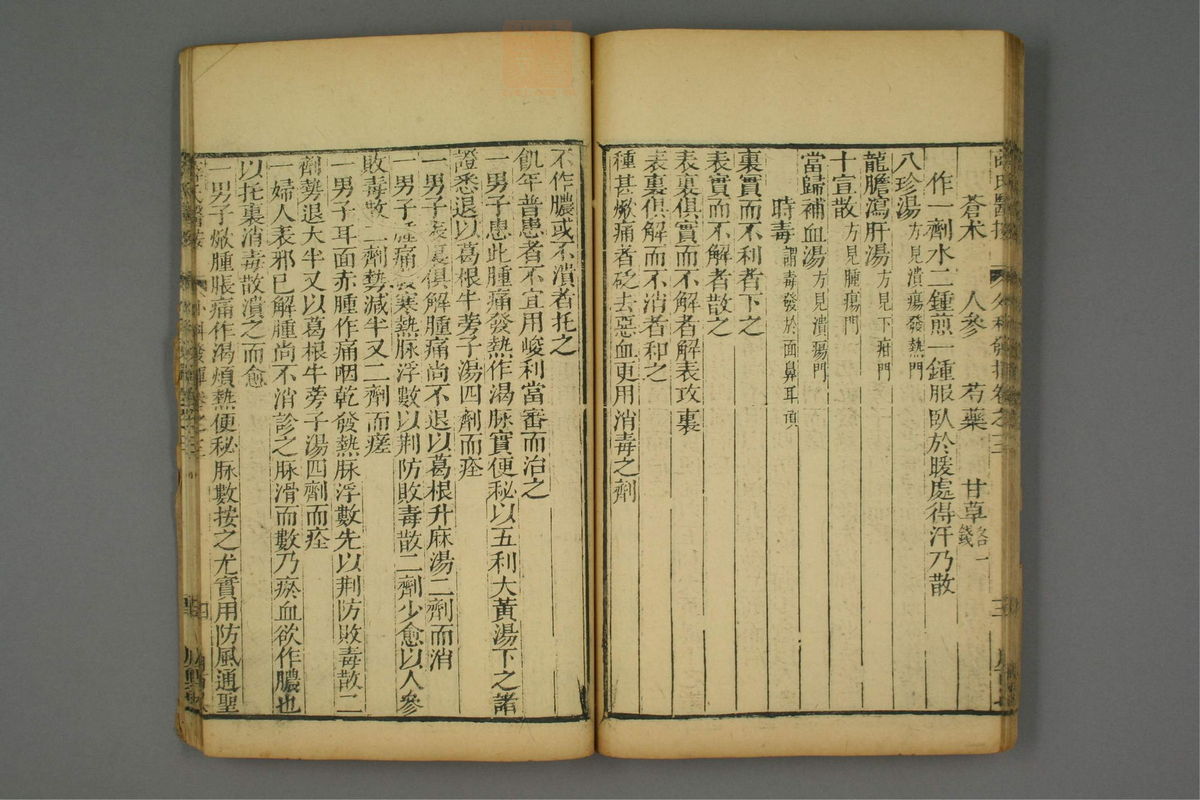 蒼朮 人參 芍藥 甘草各一錢
作一劑水二鍾煎一鍾服臥於暖處得汗乃散
八珍湯方見潰瘍發熱門
龍膽瀉肝湯方見下疳門
十宣散方見腫瘍門
當歸補血湯方見潰瘍門
時毒謂毒發於面鼻耳項
裏實而不利者下之
表實而不解者散之
表裏俱實而不解者解表攻裏
表裏俱解而不消者和之
種甚焮痛者砭去惡血更用消毒之劑
不作膿或不潰者托之
飢年普患者不宜用峻利當審而治之
一男子患此腫痛發熱作渴脉實便秘以五利大黃湯下之諸
證悉退以葛根牛蒡子湯四劑而痊
一男子表裏俱解腫痛尚不退以葛根升麻湯二劑而消
一男子腫痛發寒熱脉浮數以荆防敗毒散二劑少愈以人參
敗毒散二劑勢減半又二劑而瘥
一男子耳面赤腫作痛咽乾發熱脉浮數先以荆防敗毒散二
劑勢退大半又以葛根牛蒡子湯四劑而痊
一婦人表邪已解腫尚不消診之脉滑而數乃瘀血欲作膿也
以托裏消毒散潰之而愈
一男子焮腫脹痛作渴煩熱便秘脉數按之尤實用防風通聖